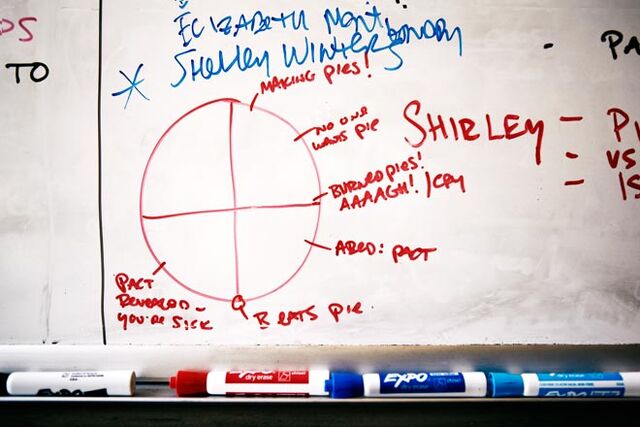 PS
TO
ELIZABETH
SHELLEY WINTERS
MAKING PIES!
NO ONE
WANTS PIE
BURNED PIES!
AAAAGH! / CRY
ABED: PACT
B EATS PIE
PACT
REVEALED -
YOU'RE SICK
PA
SHIRLEY = PI
- VS
- IS
EXPO
dry erase
EXPO
dry erase
dry erase